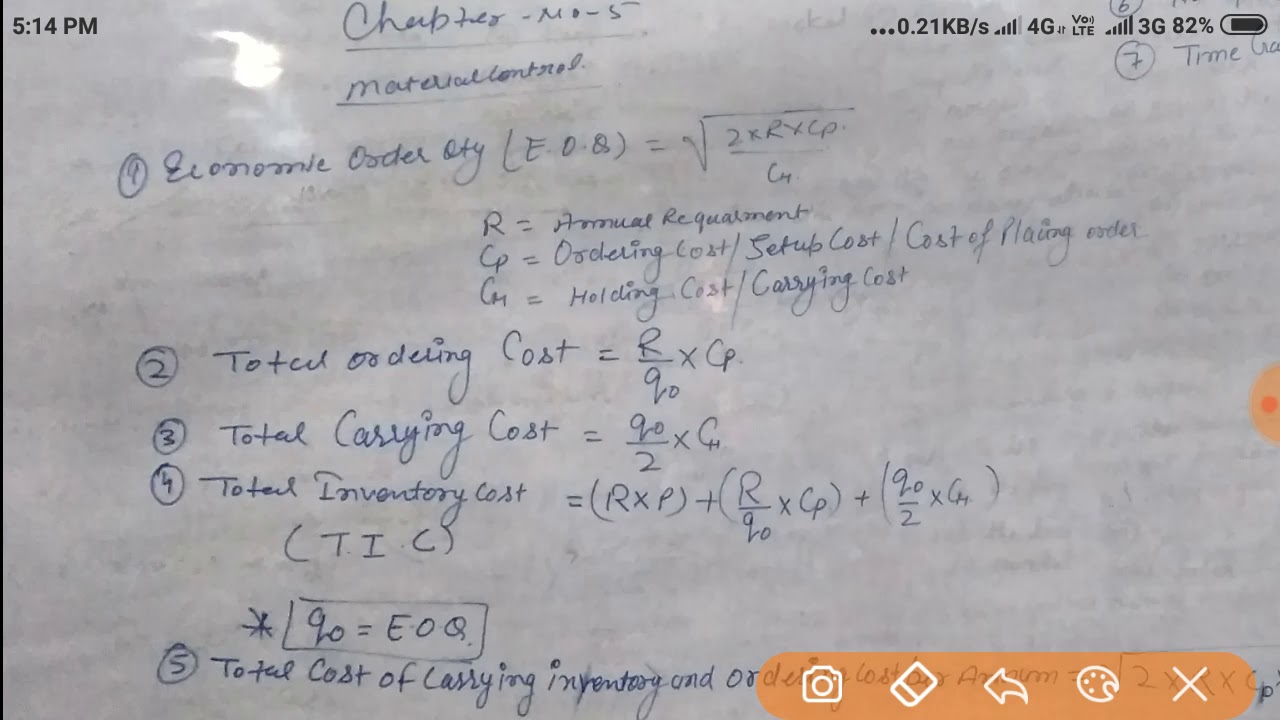 5:14 PM
...0.21KB/s 4G VoLTE 3G 82%
Chapter-No-5
Material control.
6
7 Time
① Economic Order Qty (E.O.Q) = √(2×R×Cp. / CH.)
R = Annual Requairment
Cp = Ordering Cost/Setup Cost/Cost of Placing order
CH = Holding Cost/Carrying Cost
② Total ordering Cost = R/q0 × Cp.
③ Total Carrying Cost = q0/2 × CH
④ Total Inventory cost = (R×P) + (R/q0 × Cp) + (q0/2 × CH)
(T.I.C)
* q0 = E.O.Q.
⑤ Total Cost of Carrying inventory and ordering Cost per Annum = √2×R×Cp